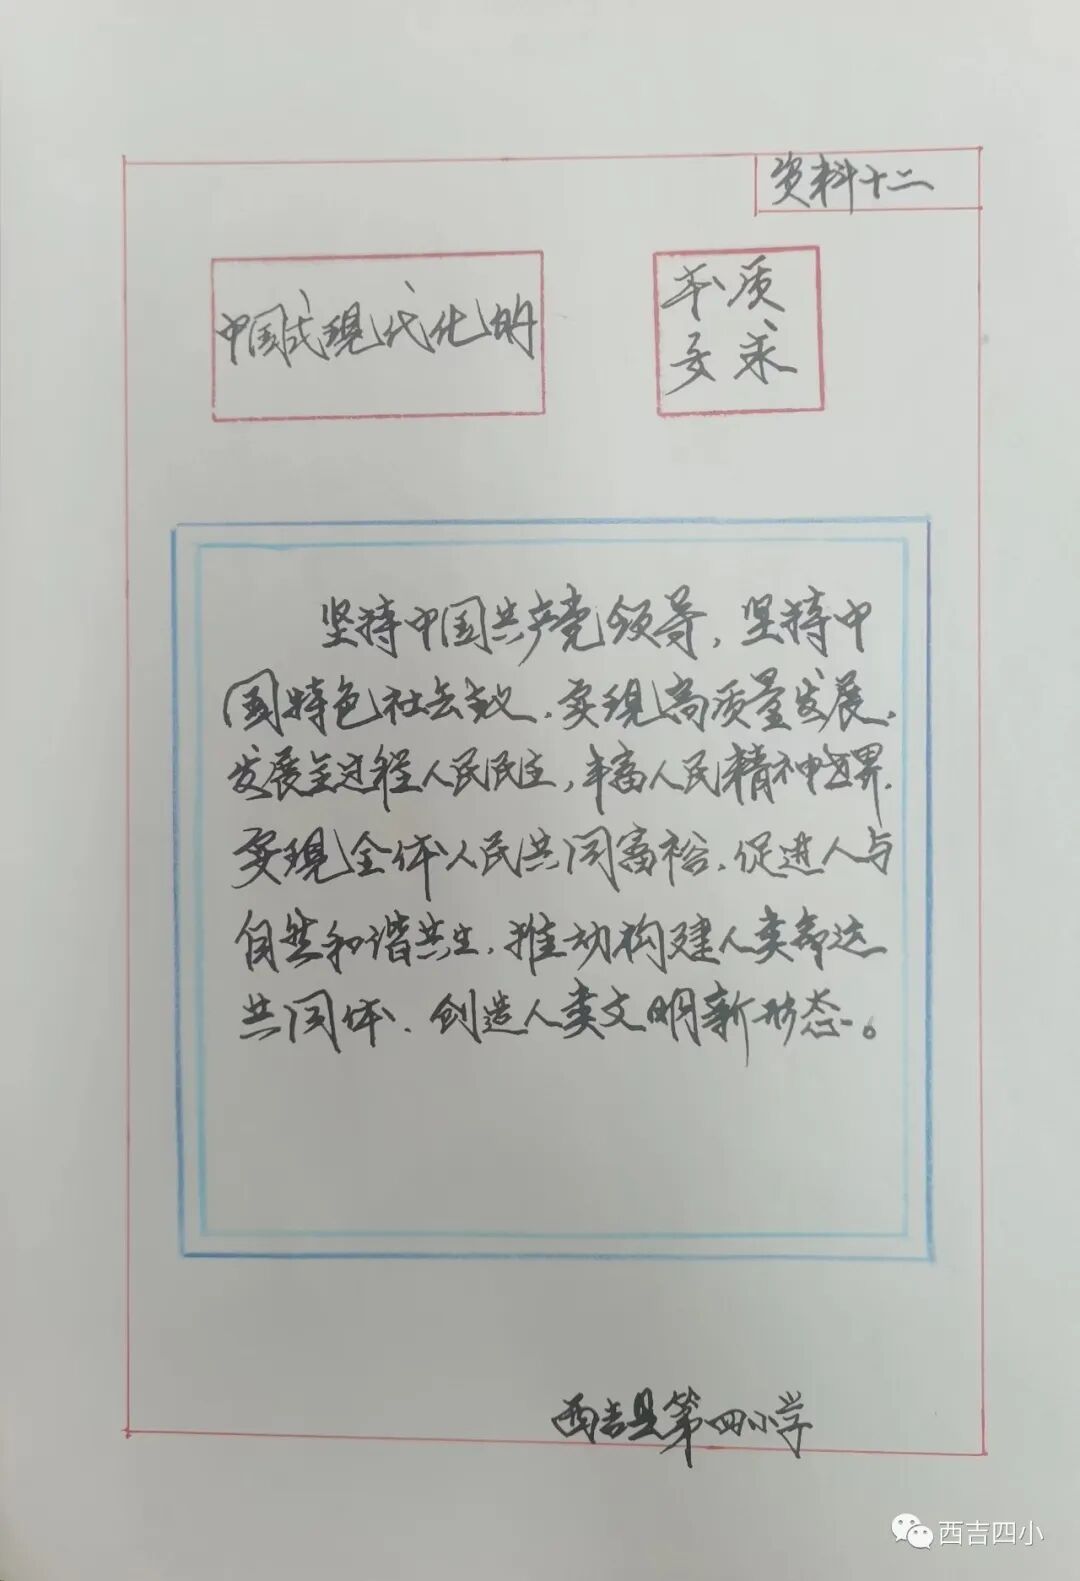 资料十二
中国式现代化的
本质
要求
坚持中国共产党领导,坚持中
国特色社会主义,实现高质量发展,
发展全过程人民民主,丰富人民精神世界,
实现全体人民共同富裕,促进人与
自然和谐共生,推动构建人类命运
共同体,创造人类文明新形态。
西吉县第四小学
西吉四小